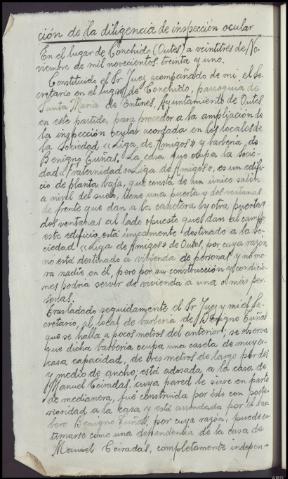 ción de la diligencia de inspección ocular
En el lugar de Conchido (Outes) a veintitres de No-
viembre de mil novecientos treinta y uno.
Constituido el Sr. Juez acompañado de mi el Se-
cretario en el lugar de Conchido, parroquia de
Santa María de Entines, Ayuntamiento de Outes
en este partido, para proceder a la ampliación de
la inspección ocular acordada en los locales de
la Sociedad "Liga de Amigos" y barbería, de
Benigno Guñas. La casa que ocupa la Socie-
dad "Fraternidad Liga de Amigos", es un edifi-
cio de planta baja, que consta de un único salón
a nivel del suelo, tiene una puerta y dos ventanas
de frente que dan a la carretera y otra puerta y
dos ventanas al lado opuesto que dan al campo
este edificio está únicamente destinado a la So-
ciedad "Liga de Amigos" de Outes, por cuya razón
no está destinado a vivienda de personal y no mo-
ra nadie en él, pero por su construcción y condicio-
nes podría servir de vivienda a una o más per-
sonas.
Trasladado seguidamente el Sr. Juez y mi el Se-
cretario, al local de barbería de Benigno Guñas
que se halla a pocos metros del anterior, se observa
que dicha barbería ocupa una caseta de muy es-
casa capacidad, de tres metros de largo por dos
y medio de ancho, está adosada a la casa de
Manuel Ceiradas, cuya pared le sirve en parte
de medianera, fue construida por éste con poste-
rioridad a la casa y está arrendada por el bar-
bero Benigno Guñas, por cuya razón, puede es-
timarse como una dependencia de la casa de
Manuel Ceiradas, completamente indepen-